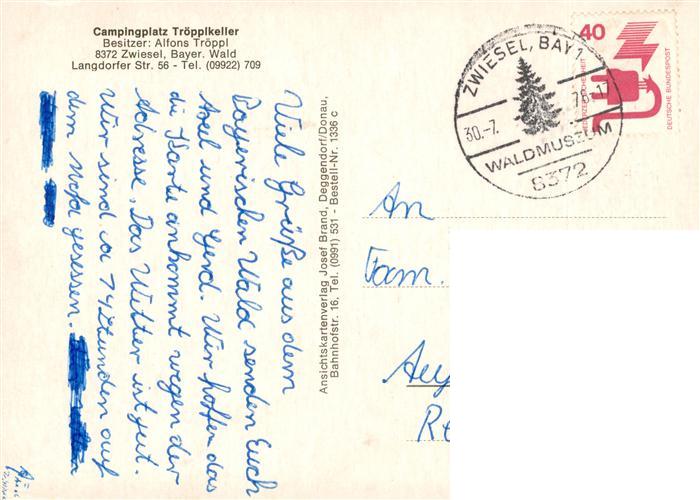 Campingplatz Tröpplkeller
Besitzer: Alfons Tröppl
8372 Zwiesel, Bayer. Wald
Langdorfer Str. 56 - Tel. (09922) 709
Viele Grüße aus dem
Bayerischen Wald senden Euch
und Gerd. Wir hoffen das
die Karte ankommt wegen der
Adresse. Das Wetter ist gut.
Wir sind ca 74 Stunden auf
dem Mofa gesessen.
Ansichtskartenverlag Josef Brand, Deggendorf/Donau,
Bahnhofstr. 16, Tel. (0991) 531 - Bestell-Nr. 1336 c
ZWIESEL, BAY 1
30.-7. 76-17
WALDMUSEUM
8372
40
DEUTSCHE BUNDESPOST
An
Fam.